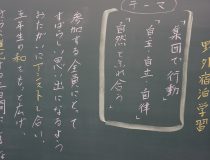 野外宿泊学習
(テーマ)
「集団で行動」
「自主・自立・自律」
「自然とふれ合う」
参加する全員にとって
すばらしい思い出になるよう
おたがいにアシストし合い、
五年生の和を